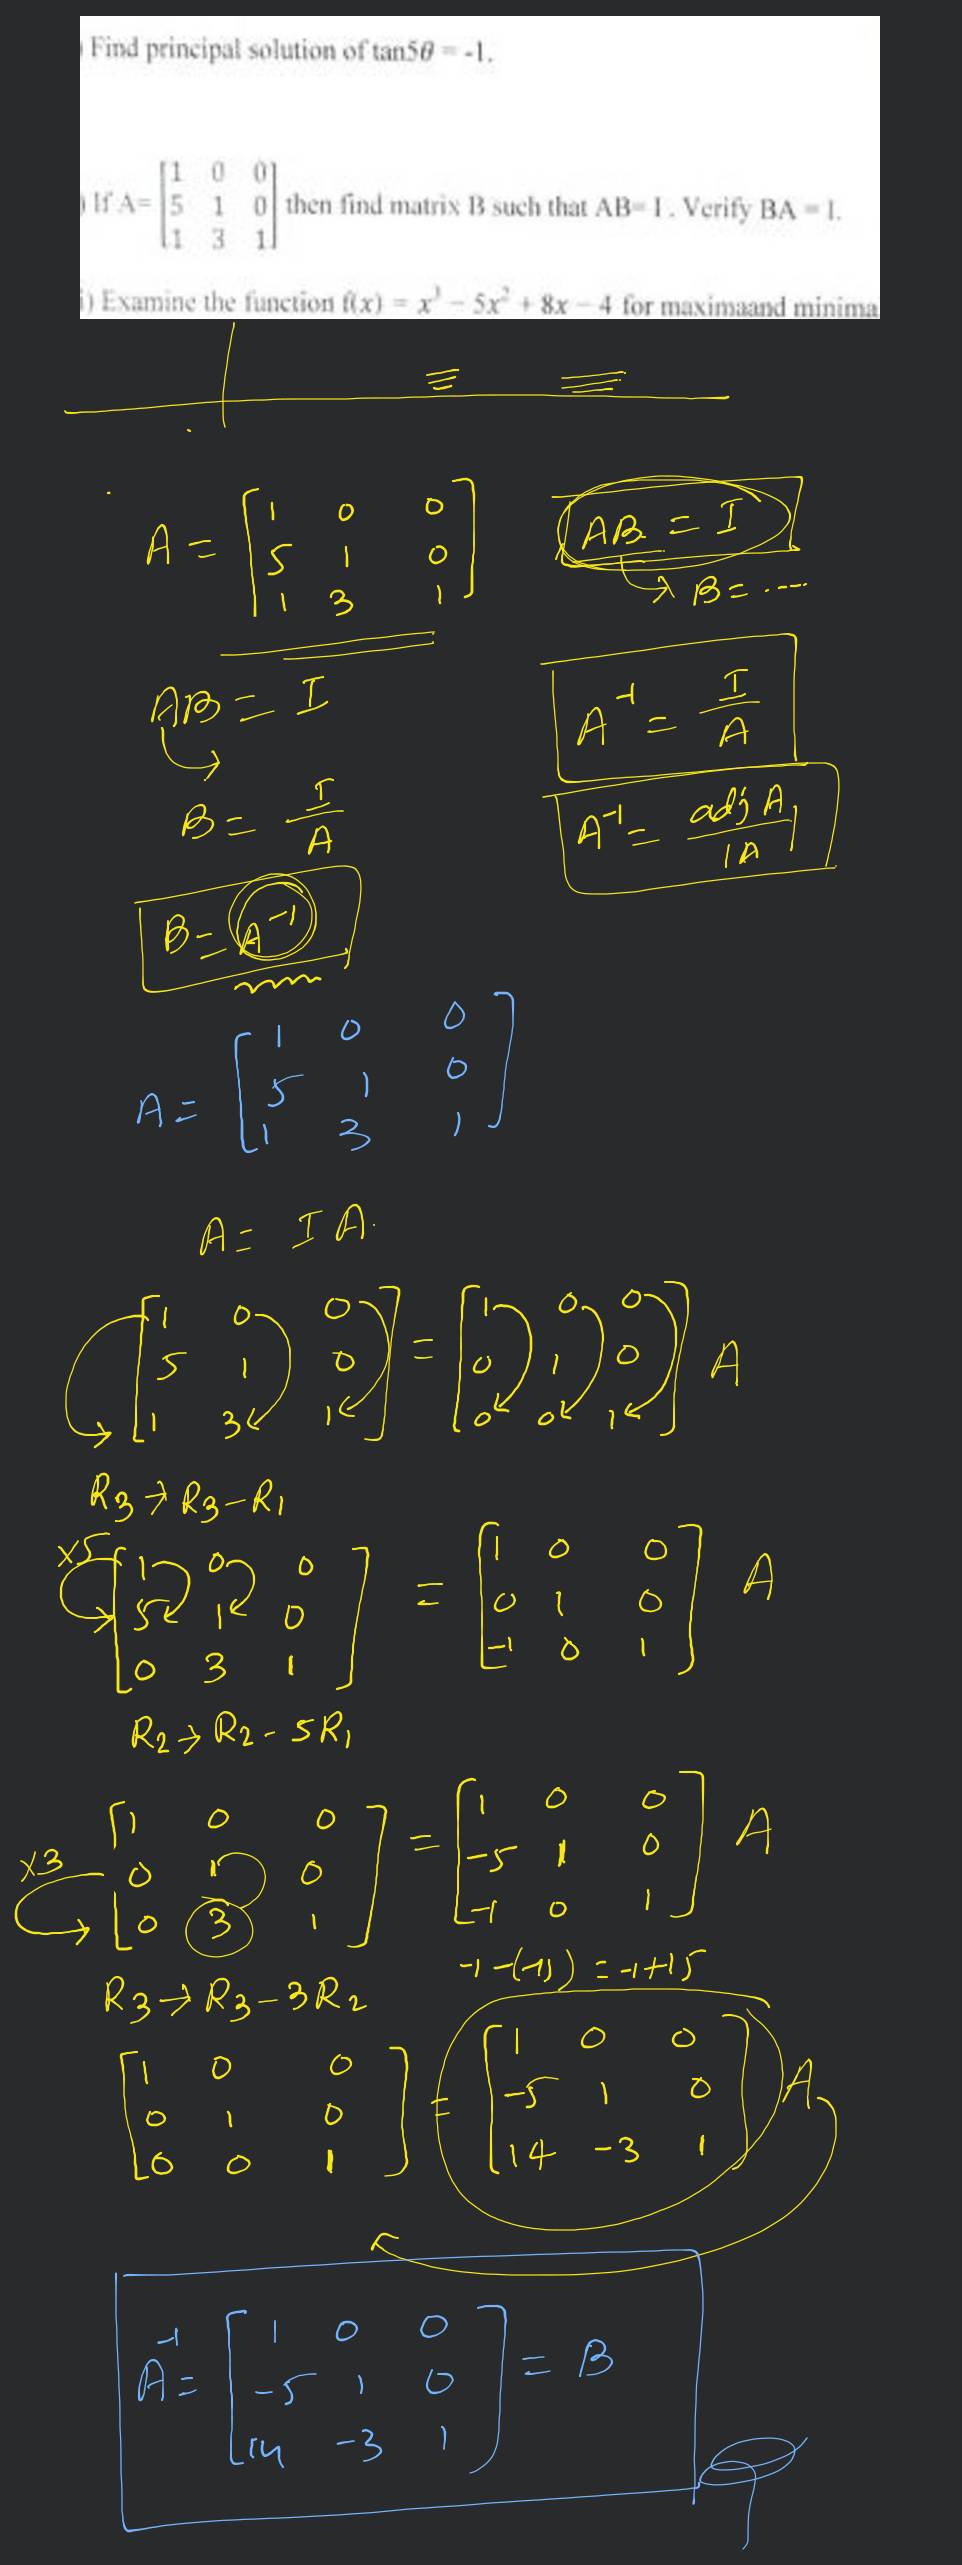 Find principal solution of tan5θ = -1.
If A= [1 0 0
5 1 0
1 3 1] then find matrix B such that AB= I . Verify BA = I.
) Examine the function f(x) = x³ - 5x² + 8x - 4 for maximaand minima
A = [1 0 0
5 1 0
1 3 1]
AB = I
→ B = ....
AB = I
A⁻¹ = I/A
B = I/A
A⁻¹ = adj A/|A|
B = A⁻¹
A = [1 0 0
5 1 0
1 3 1]
A = I A.
[1 0 0
5 1 0
1 3 1] = [1 0 0
0 1 0
0 0 1] A
R3 → R3 - R1
×5
[1 0 0
5 1 0
0 3 1] = [1 0 0
0 1 0
-1 0 1] A
R2 → R2 - 5R1
×3
[1 0 0
0 1 0
0 3 1] = [1 0 0
-5 1 0
-1 0 1] A
R3 → R3 - 3R2
-1-(-15) = -1+15
[1 0 0
0 1 0
0 0 1] = [1 0 0
-5 1 0
14 -3 1] A
A⁻¹ = [1 0 0
-5 1 0
14 -3 1] = B